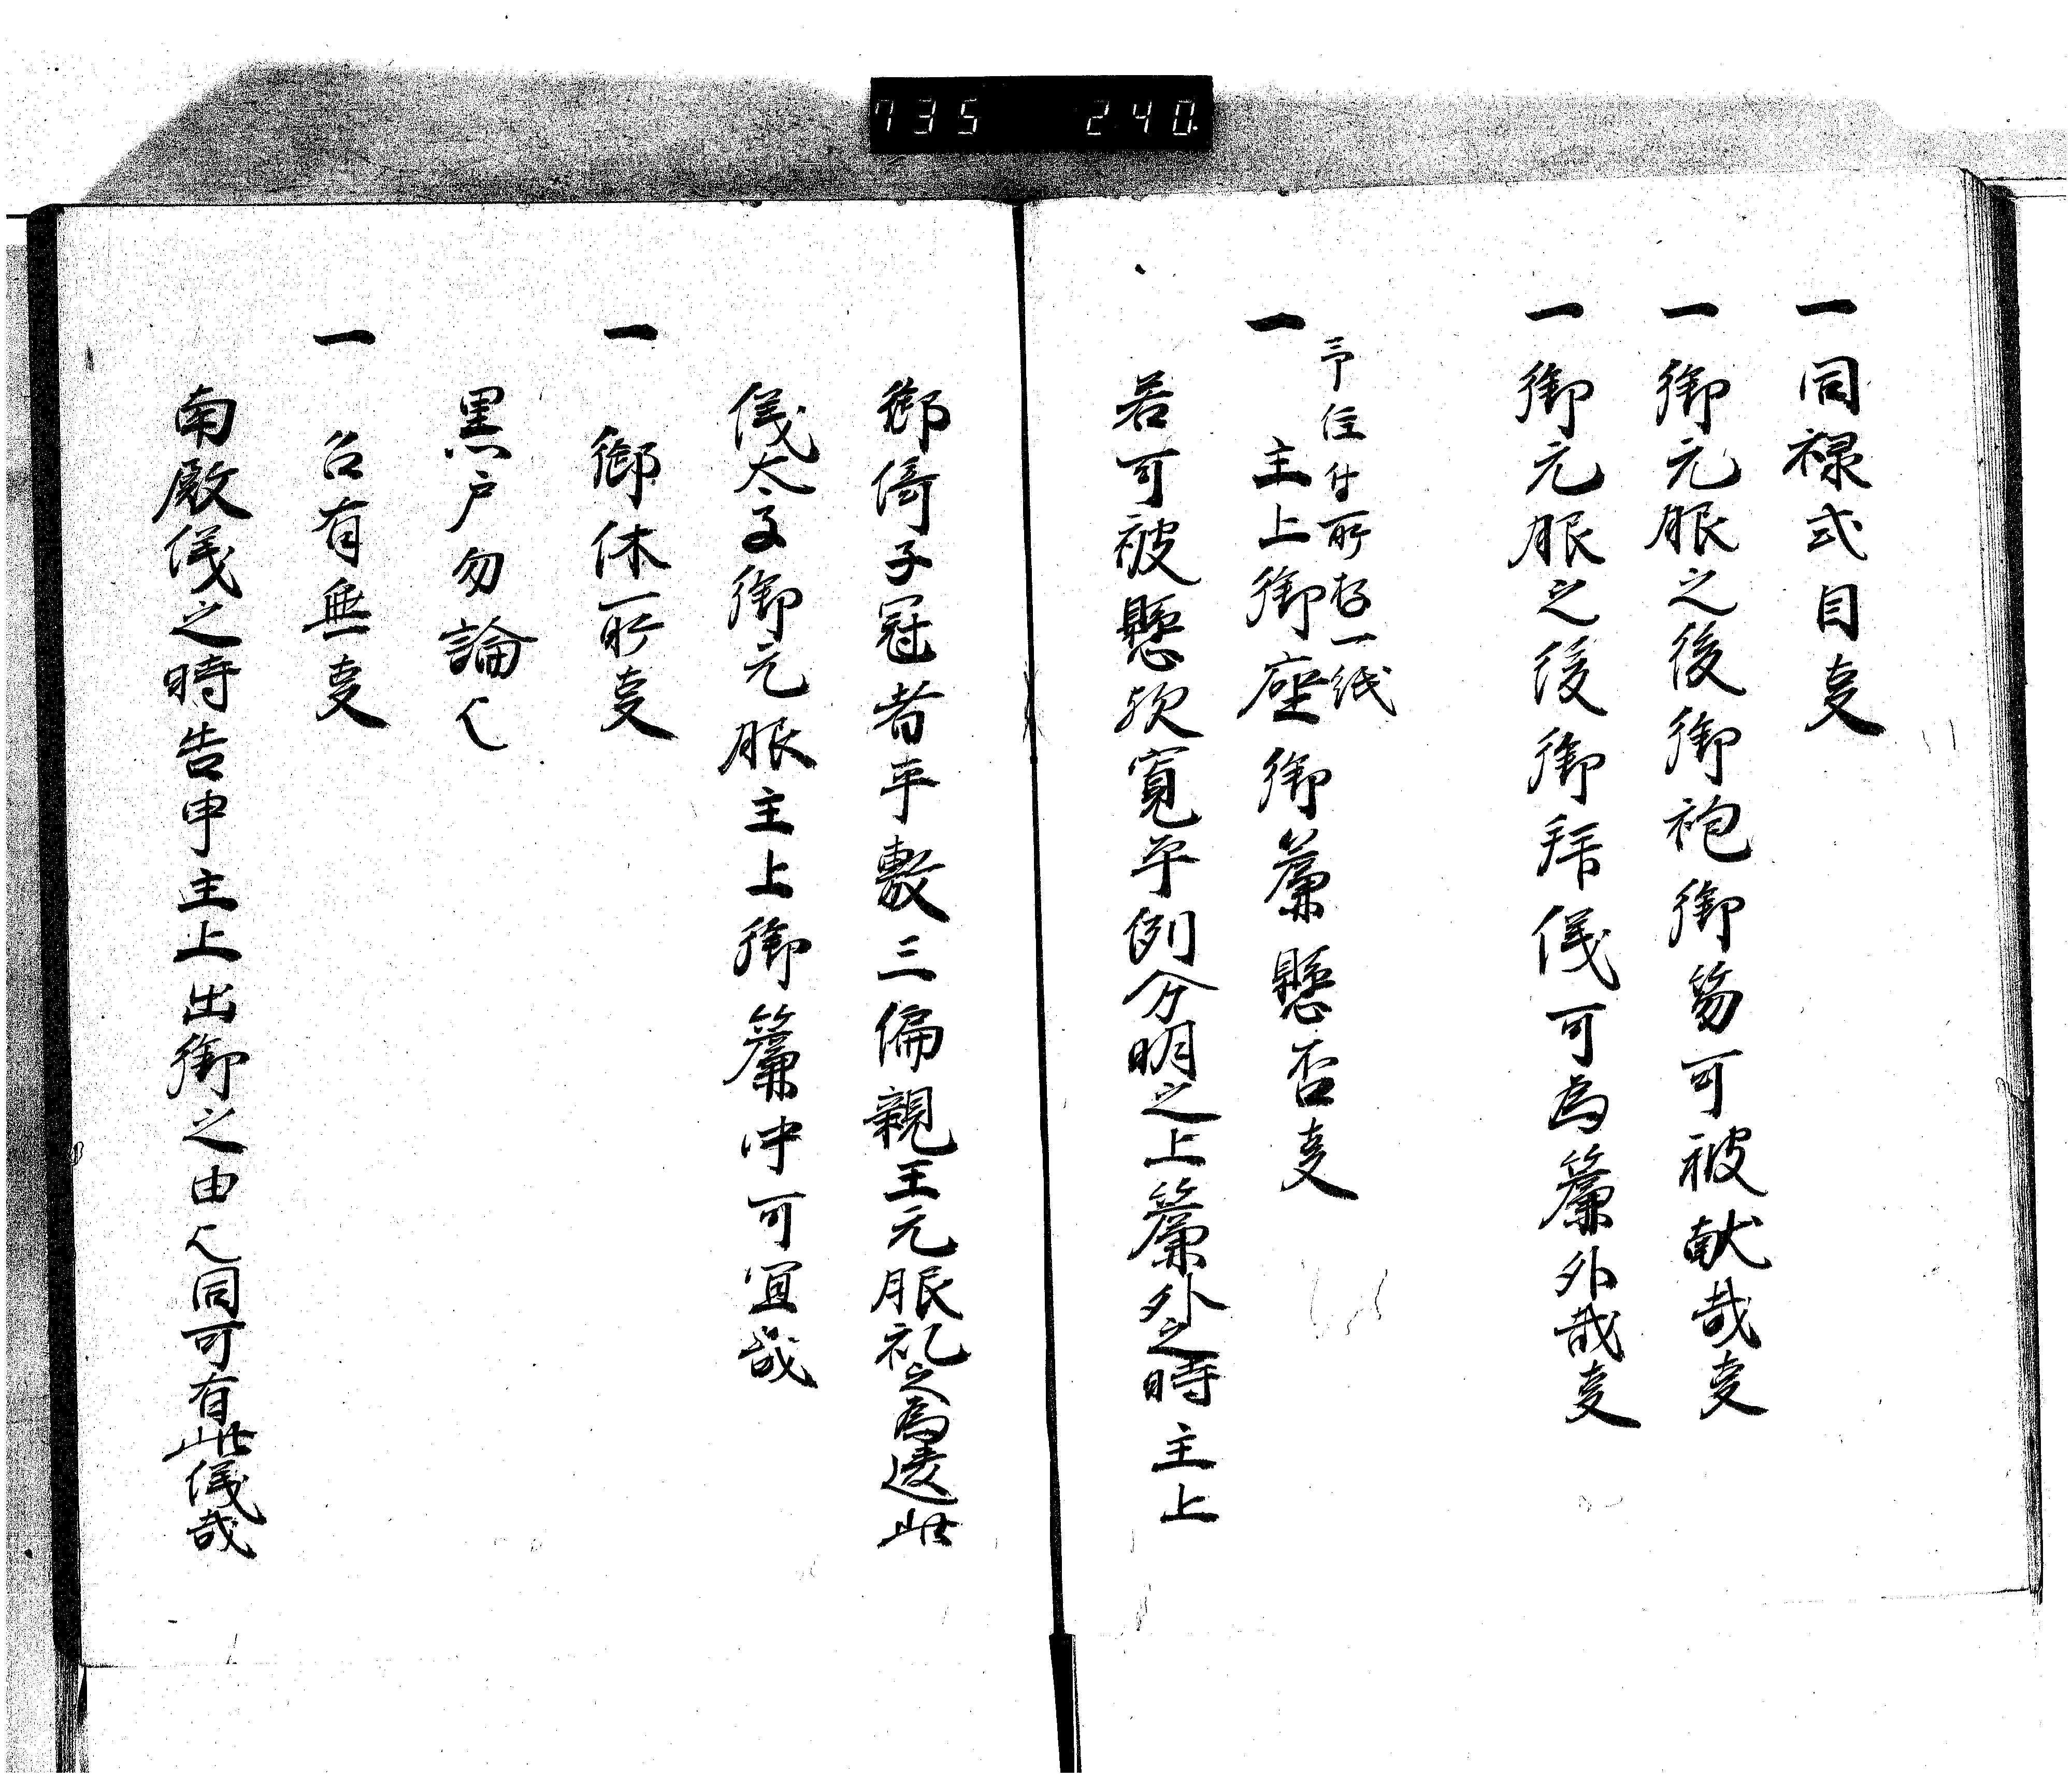 735 240
一同禄式目事
一御元服之後御袍御笏可被献哉事
一御元服之後御拝儀可為簾外哉事
予注付所存一紙
一主上御座御簾懸否事
若可被懸歟寛平例分明之上簾外之時主上
御倚子冠者平敷三偏親王元服礼之為違此
儀太子御元服主上御簾中可宜哉
一御休所事
黒戸勿論也
一召有無事
南殿儀之時告申主上出御之由也同可有此儀哉